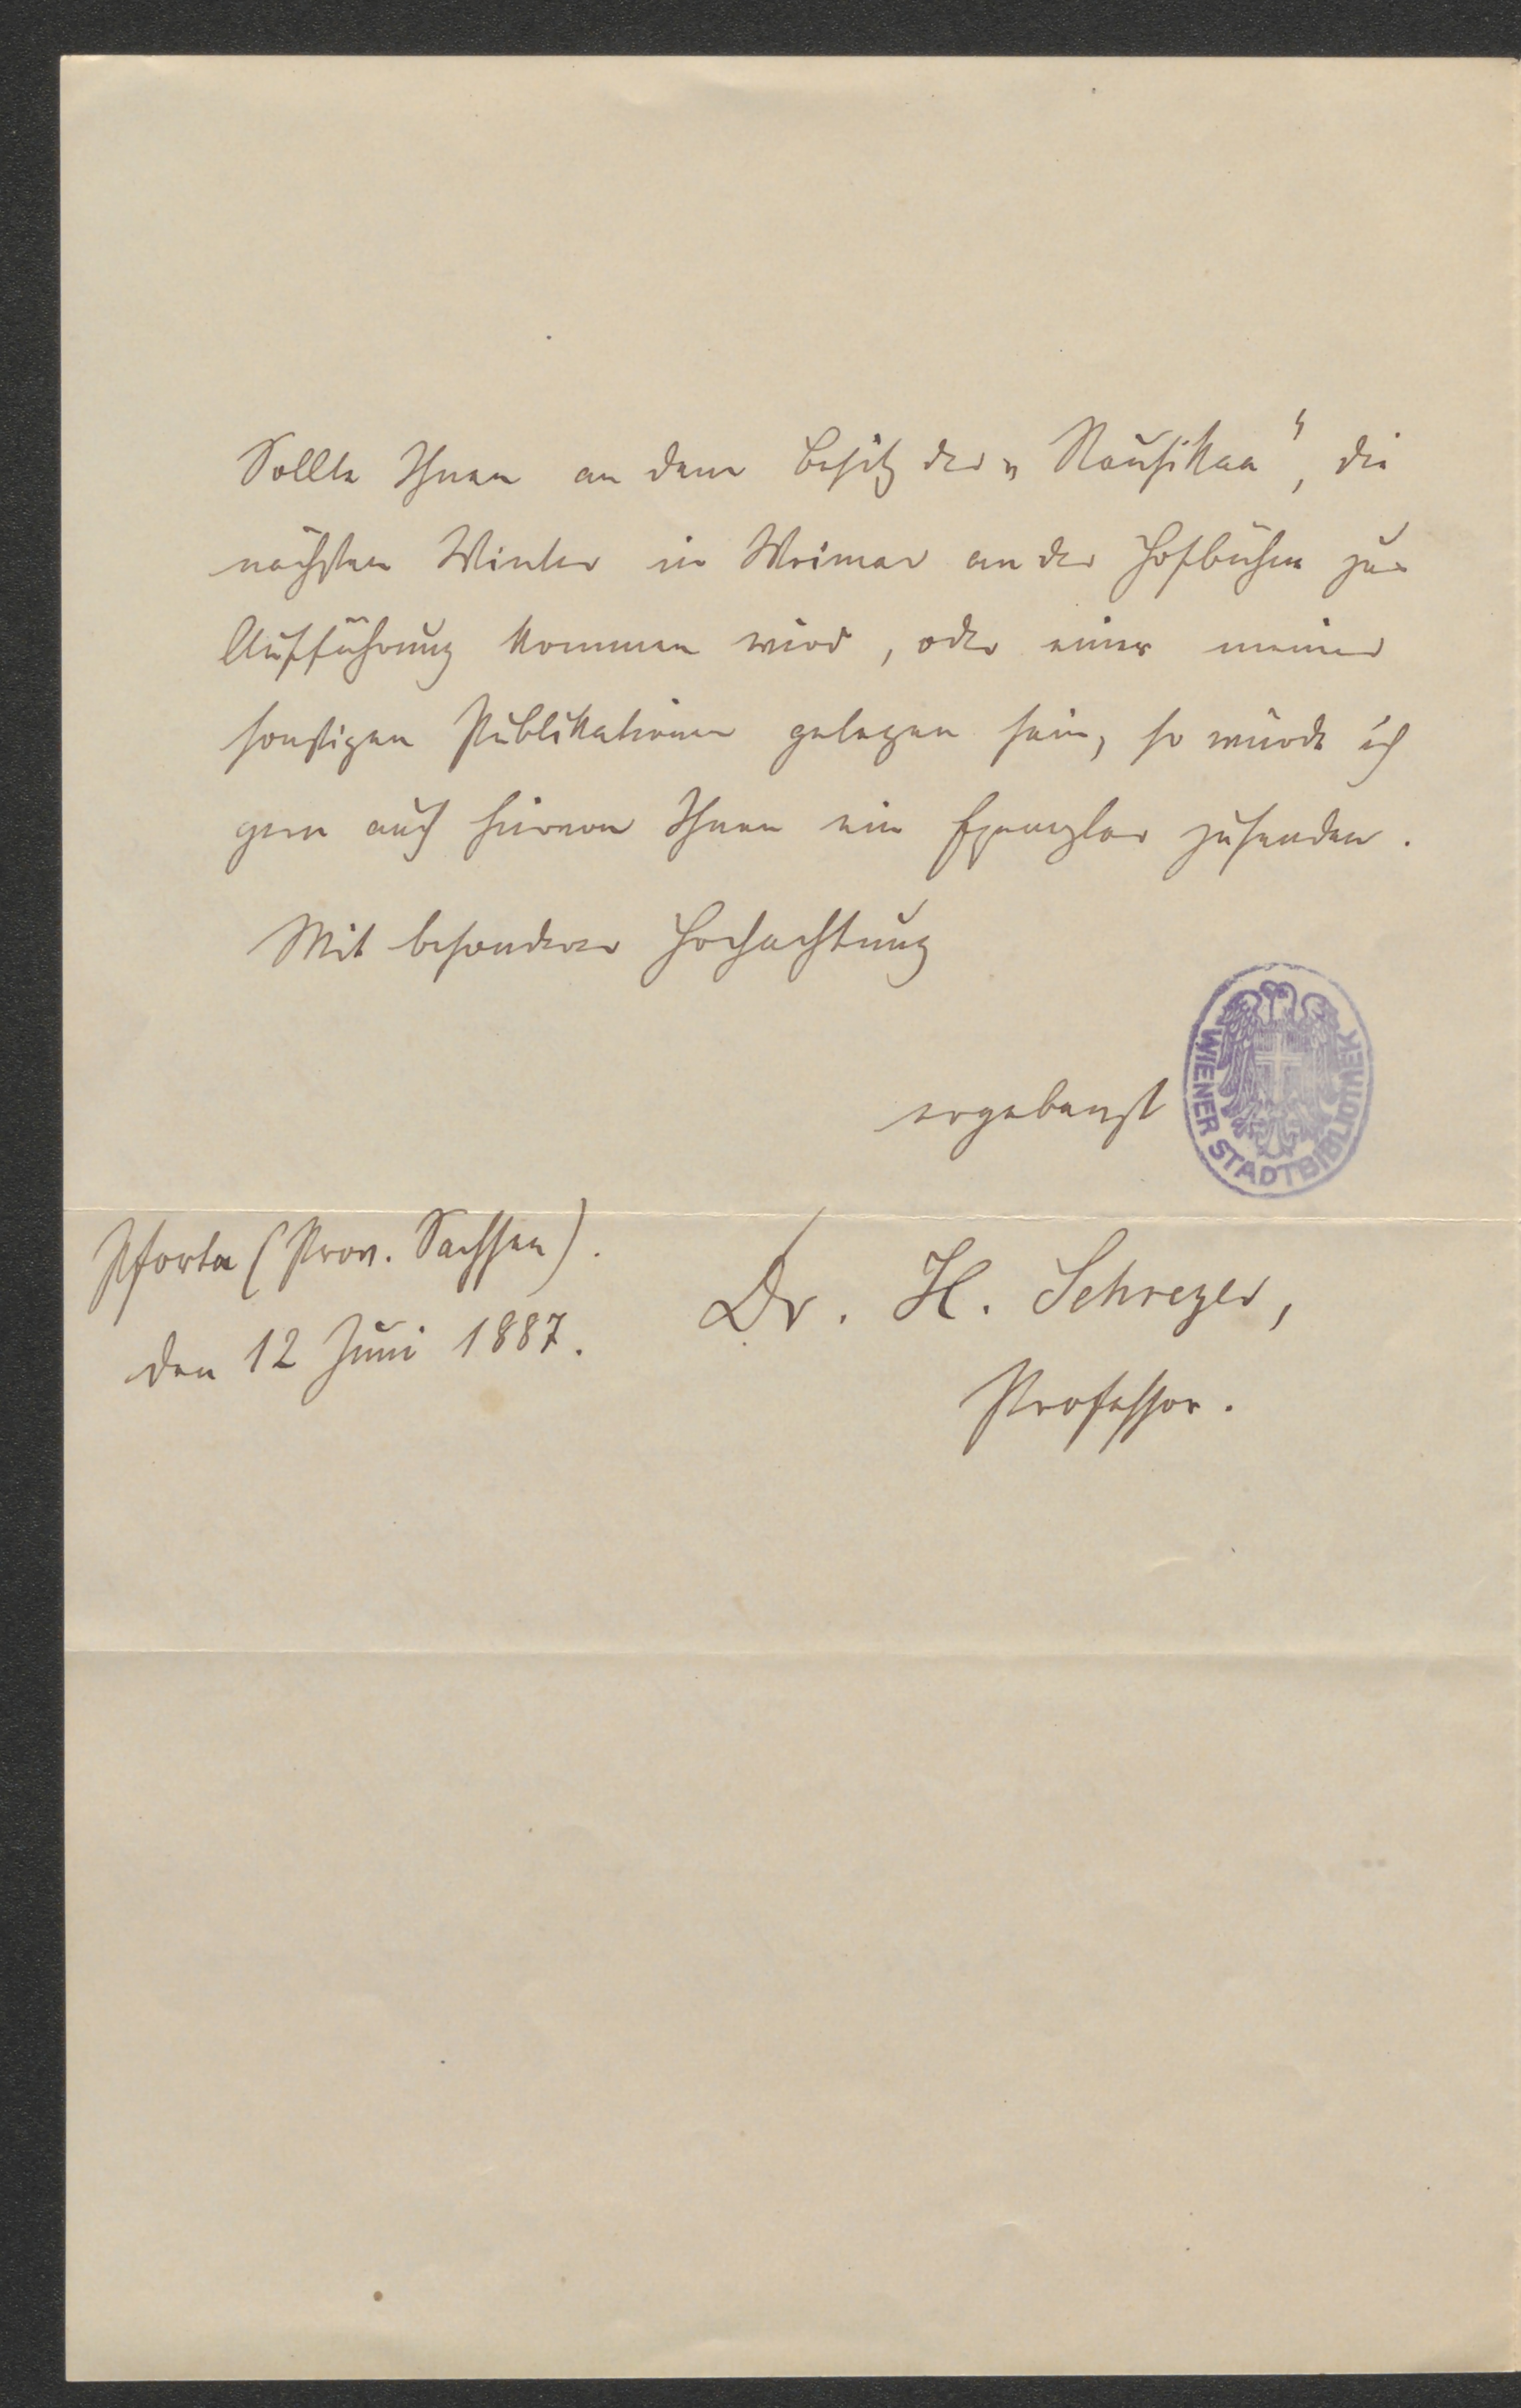 Sollte Ihnen an dem Besitz der „Nausikaa“, die
nächsten Winter in Weimar an der Hofbühne zur
Aufführung kommen wird, oder einer meiner
sonstigen Publikationen gelegen sein, so würde ich
gern auch hiervon Ihnen ein Exemplar zusenden.
Mit besonderer Hochachtung
ergebenst
WIENER STADTBIBLIOTHEK
Pforta (Prov. Sachsen).
den 12 Juni 1887.
Dr. H. Schreyer,
Professor.